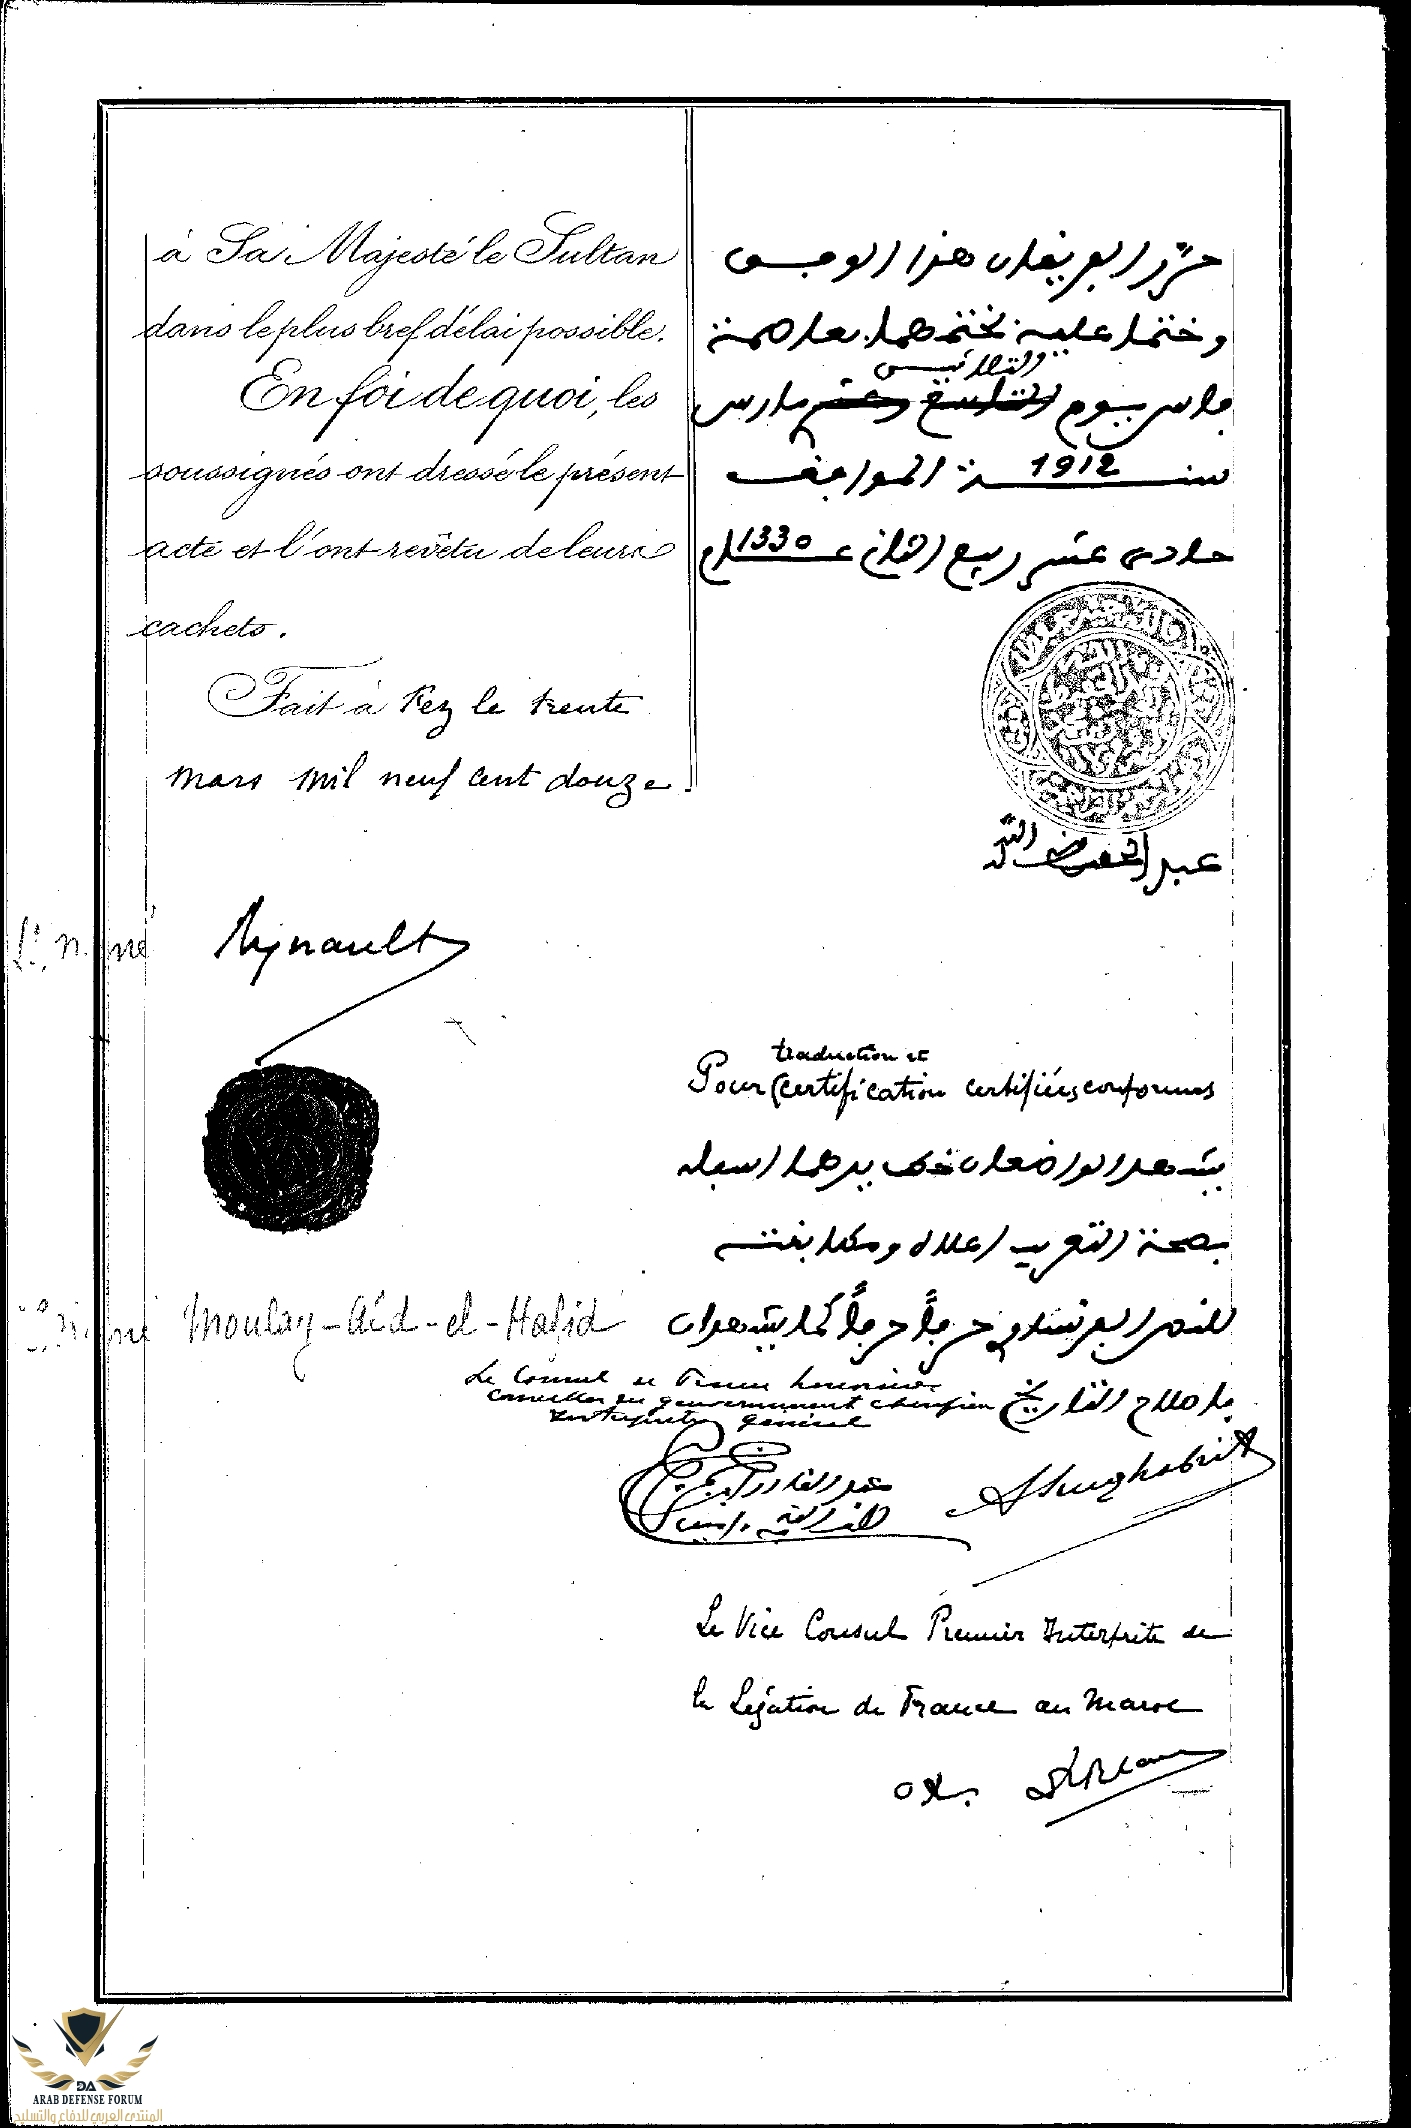 à Sa Majesté le Sultan
dans le plus bref délai possible.
En foi de quoi, les
soussignés ont dressé le présent
acte et l'ont revêtu de leurs
cachets.
Fait à Fez le trente
mars mil neuf cent douze
حرّر الفريقان هذا الوفق
وختما عليه بختمهما بعاصمة
والثلاثين
فاس يوم التاسع وعشر مارس
سنة 1912 الموافق
حادى عشر ربيع الثاني عام 1330
عبد الحفيظ
Signé Regnault
traduction et
Pour certification certifiées conformes
يشهد الواضعان خط يدهما اسفله
بصحة التعريب اعلاه ومطابقته
للنص الفرنساوي حرفاً حرفاً كما يشهدان
باصلاح التاريخ
Signé Moulay-Aíd-el-Hafid
Le Consul de France honoraire
Conseiller du gouvernement chérifien
Interprète général
Le Vice Consul Premier Interprète de
la Légation de France au Maroc
ARAB DEFENSE FORUM
المنتدى العربي للدفاع والتسليح